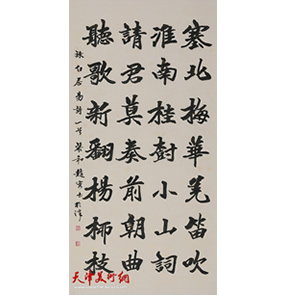 塞北梅華羌笛吹
淮南桂樹小山詞
請君莫奏前朝曲
聽歌新翻楊柳枝
白居易詩一首
天津美术网